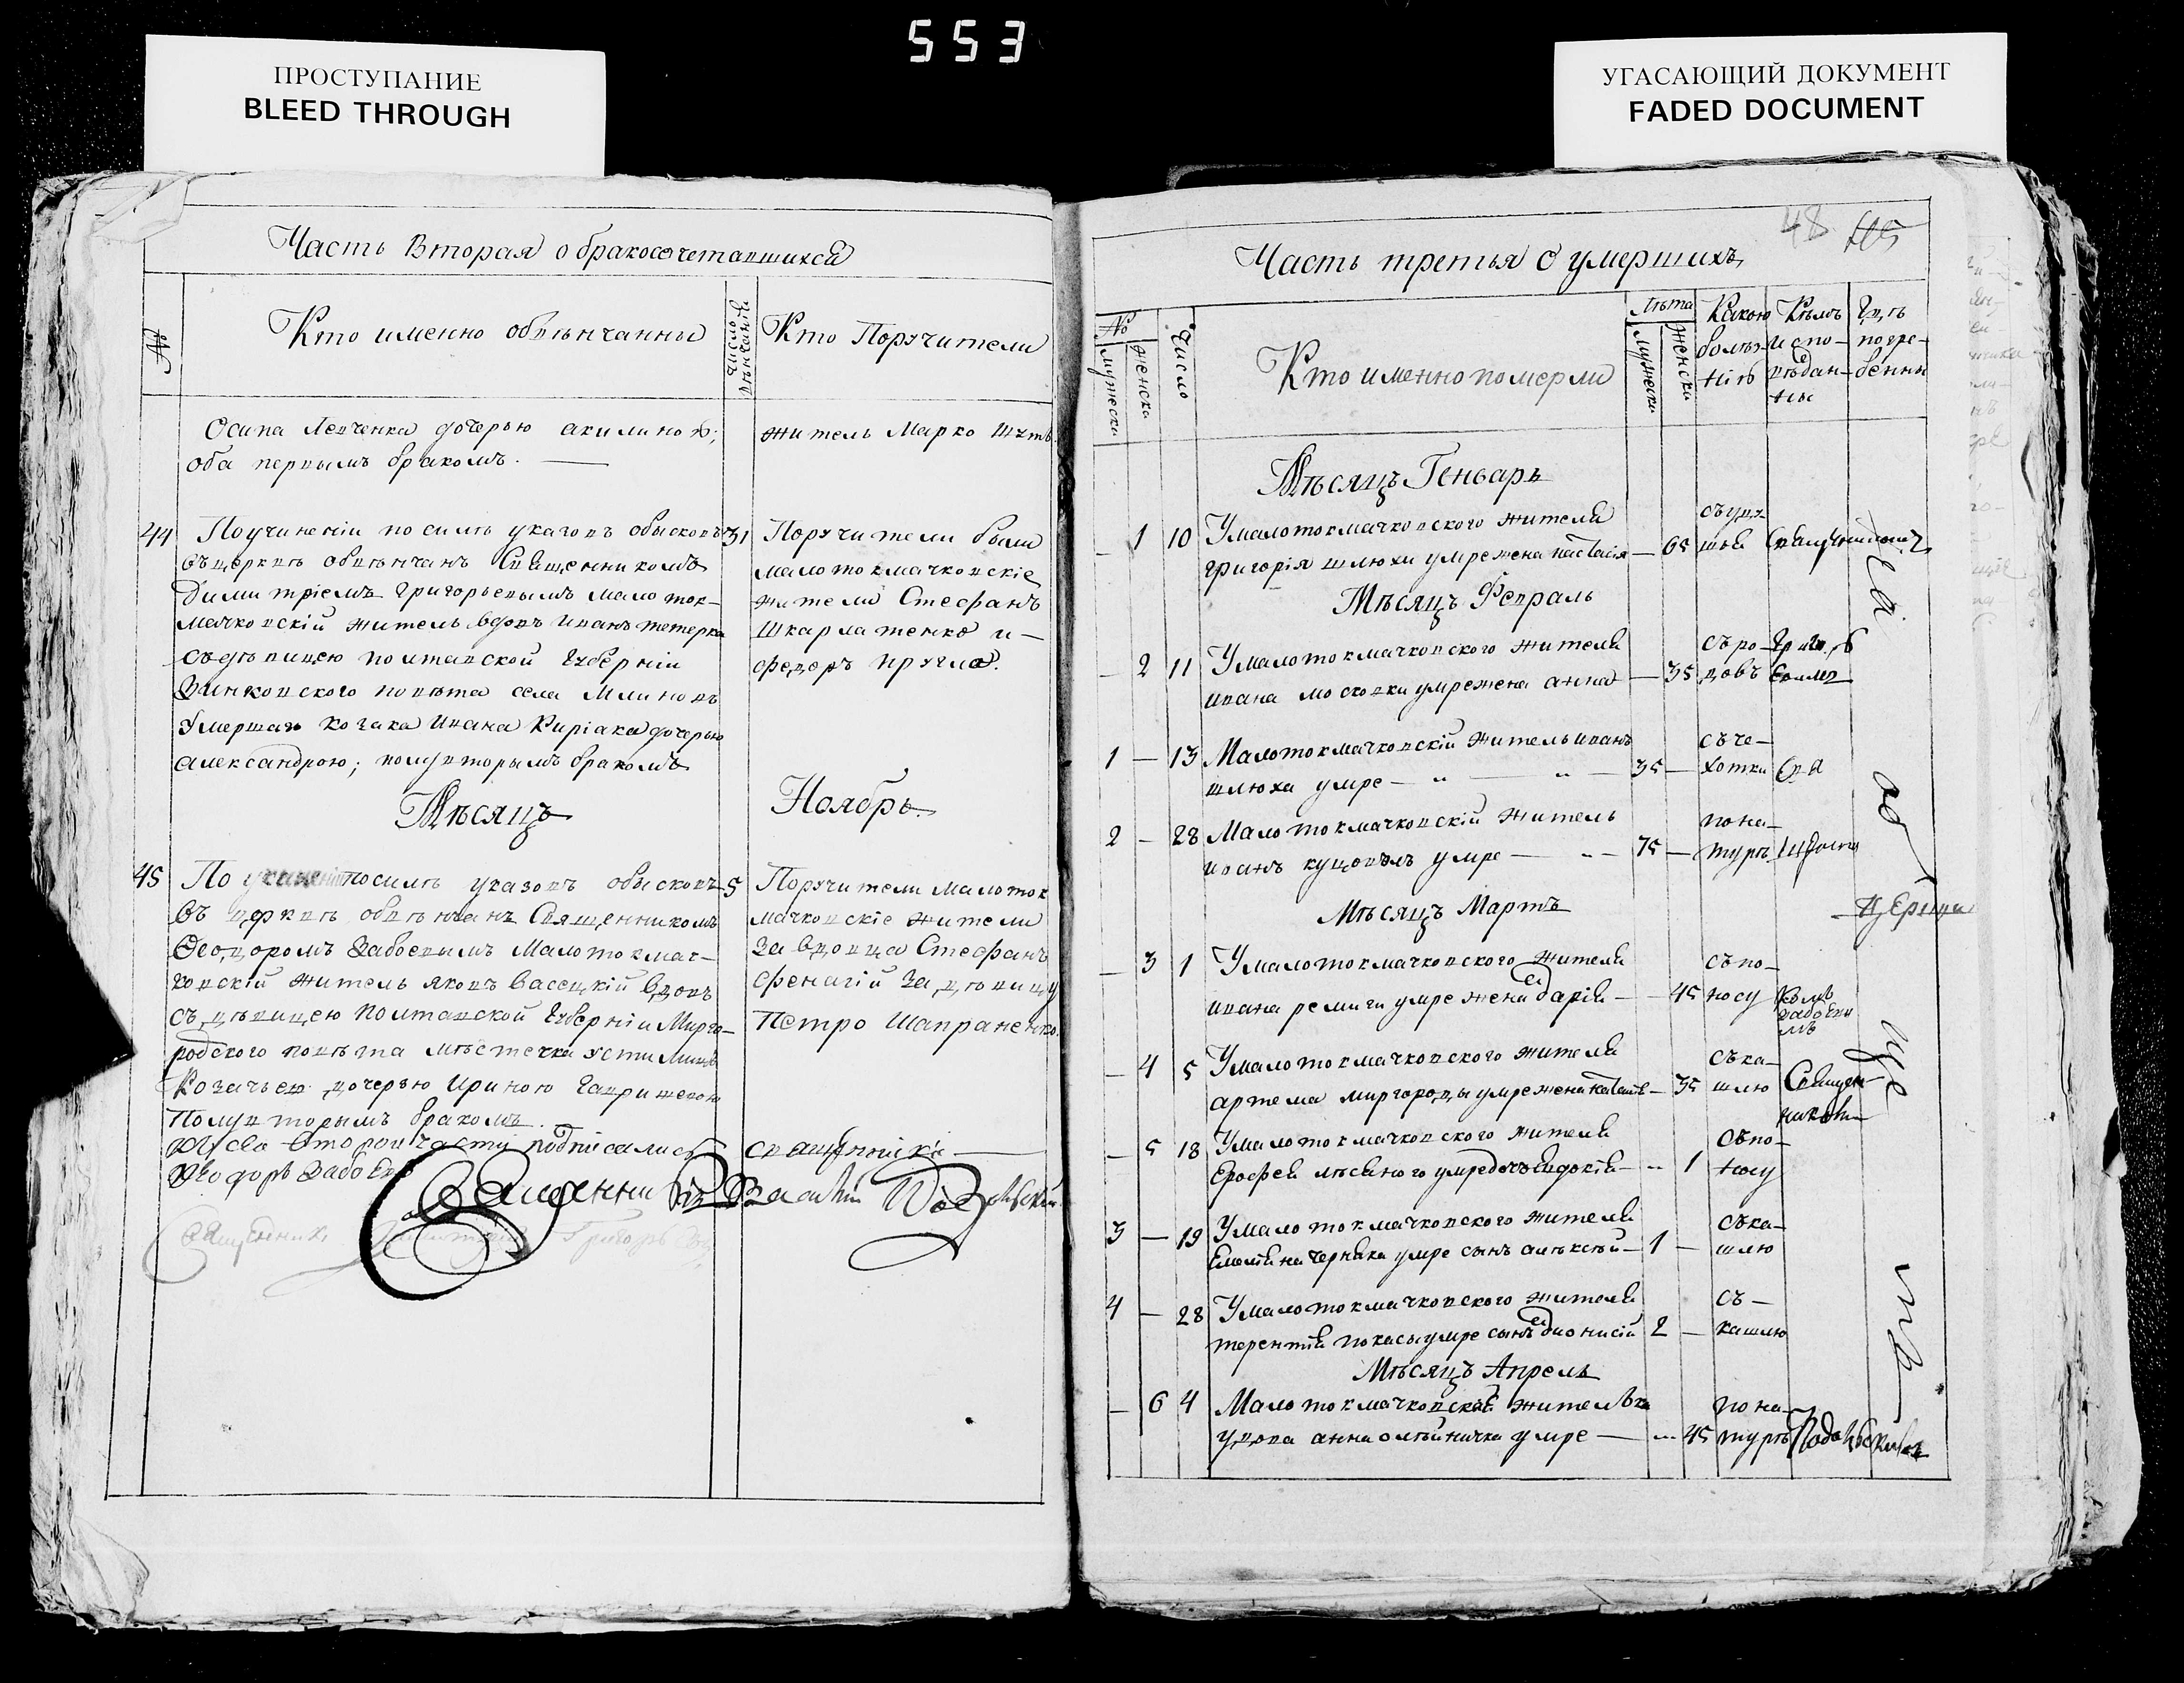 553
ПРОСТУПАНИЕ
BLEED THROUGH
УГАСАЮЩИЙ ДОКУМЕНТ
FADED DOCUMENT
Часть Вторая о бракосочетавшихся
№
Кто именно обвѣнчанны
Число вѣнчанія
Кто Поручители
Осипа Левченка дочерью акилиною;
оба первымъ бракомъ.
житель Марко
44
По учиненіи по силѣ указовъ обысковъ
въ церквѣ обвѣнчанъ Священникомъ
Димитріемъ Григорьевымъ мало ток-
мачковскій житель вдовъ Иванъ тетерка
съ дѣвицею полтавской Губерніи
Зинковского повѣта села Млиновъ
Умершаго козака Ивана Киріака дочерью
александрою; полувторымъ бракомъ
31
Поручители были
малотокмачковскіе
жители Стефанъ
Шкарлатенко и
федоръ кругла.
Мѣсяцъ
Ноябрь.
45
По учиненіи посилѣ указовъ обысковъ
въ церквѣ обвѣнчанъ Священникомъ
Феодоромъ Забоевымъ Малотокмач-
ковскій житель яковъ Васецкій вдовъ
съ дѣвицею Полтавской Губерніи Мирго-
родского повѣта мѣстечка устимицъ
Козачьею дочерью Ириною Гавришевою
Полувторымъ бракомъ.
5
Поручители Малоток
мачковскіе жители
За вдовца Стефанъ
За дѣвицу
Петро Шапраненко.
второй части подписались священники
Феодоръ Забоевъ
Священникъ Василій
Священникъ Димитрій Григорьевъ
48
Часть третья о умершихъ
№
мужески
женска
Число
Кто именно померли
Лѣта
мужески
женски
Какою болѣз-нію
Кѣмъ испо-вѣдан-ны
Гдѣ погре-бенны
Мѣсяцъ Геньварь
— 1 10 Умалотокмачковского жителя
григорія шлюхи умре жена настасія — 65
Мѣсяцъ Февраль
— 2 11 Умалотокмачковского жителя
ивана московки умре жена анна — 35
съ ро-
довъ
1 — 13 Малотокмачковскій житель иванъ
шлюха умре — „ — „ — 35 —
съ че-
хотки
2 — 28 Малотокмачковскій житель
иванъ куцовѣлъ умре — „ — 75 —
по на-
турѣ
Мѣсяцъ Мартъ
— 3 1 Умалотокмачковского жителя
ивана ремиги умре жена дарія — 45
съ по-
носу
— 4 5 Умалотокмачковского жителя
артема миргороды умре жена наталія — 35
съ ка-
шлю
Священ-
никомъ
— 5 18 Умалотокмачковского жителя
Ерофея лѣсного умре дочь евдокія — „ 1
съ по-
носу
3 — 19 Умалотокмачковского жителя
Емеліяна черняка умре сынъ алексѣй — 1 —
съ ка-
шлю
4 — 28 Умалотокмачковского жителя
терентія покасы умре сынъ дионисій 2 —
съ —
кашлю
Мѣсяцъ Апрель
— 6 4 Малотокмачковская жителька
удова анна олѣйничка умре — „ 45
по на-
турѣ